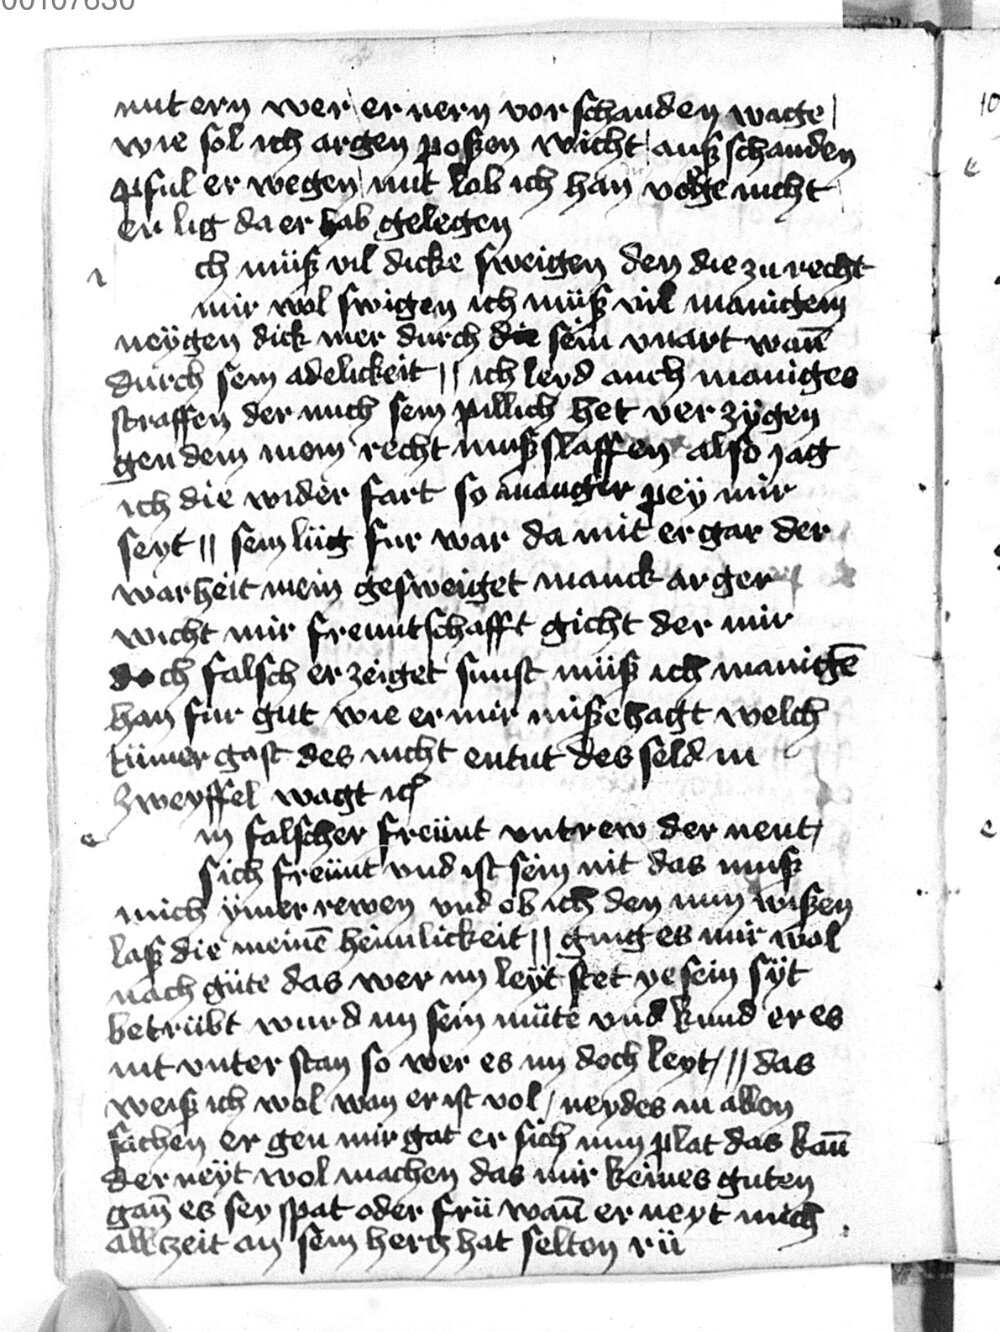 00107630
mit ern wer er nern vor schanden wage
wie sol ich argen poßen wicht auß schanden
pful er wegen mit lob ich han volge nicht
er lig da er hab gelegen
ch müß vil dicke sweigen den die zu recht
mir wol swigen ich müß vil manigem
neÿgen dick mer durch die sein vnart wan̄
durch sein adelickeit // ich leyd auch maniges
straffen der mich sein pillich het ver zÿgen
gen dem mein recht muß slaffen also jag
ich die wider fart so maniger peÿ mir
seyt // sein lüg fur war da mit er gar der
warheit mein gesweiget manck arger
wicht mir freuntschafft gicht der mir
doch falsch er zeiget sunst müß ich manigē
han fur gut wie er mir mißehagt welch
tümer gast des nicht entut des seld in
zweyffel wagt ich
in falscher freünt vntrew der nent
sich freünt vnd ist sein nit das muß
mich ÿmer rewen vnd ob ich den nun wißen
laß die meinē heimlickeit // ging es mir wol
nach güte das wer im leÿt stet ye sein sÿt
betrübt wurd im sein müte vnd kund er es
nit vnter stan so wer es im doch leyt /// das
weiß ich wol wan er ist vol / neydes in allen
sachen er gen mir gat er sich nun plat das kan̄
der neÿt wol machen das mir keines guten
gan̄ es sey spat oder frü wan̄ er neyt mich
allczeit an sein hercz hat selten rü
10
e
e